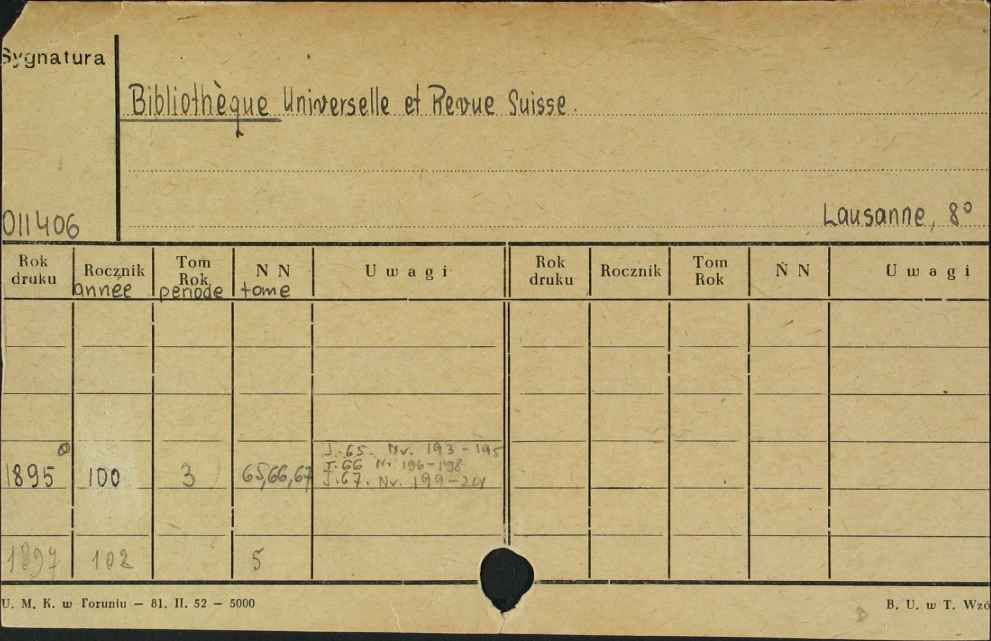 Sygnatura
Bibliothèque Universelle et Revue Suisse.
011406
Lausanne, 8°
Rok druku Rocznik année Tom Rok periode N N tome U w a g i Rok druku Rocznik Tom Rok N N U w a g i
1895 100 3 65,66,67 T.65. Nr. 193-195
T.66 Nr 196-198
T.67. Nr. 199-201
1897 102 5
U. M. K. w Toruniu — 81. II. 52 — 5000
B. U. w T. Wzó